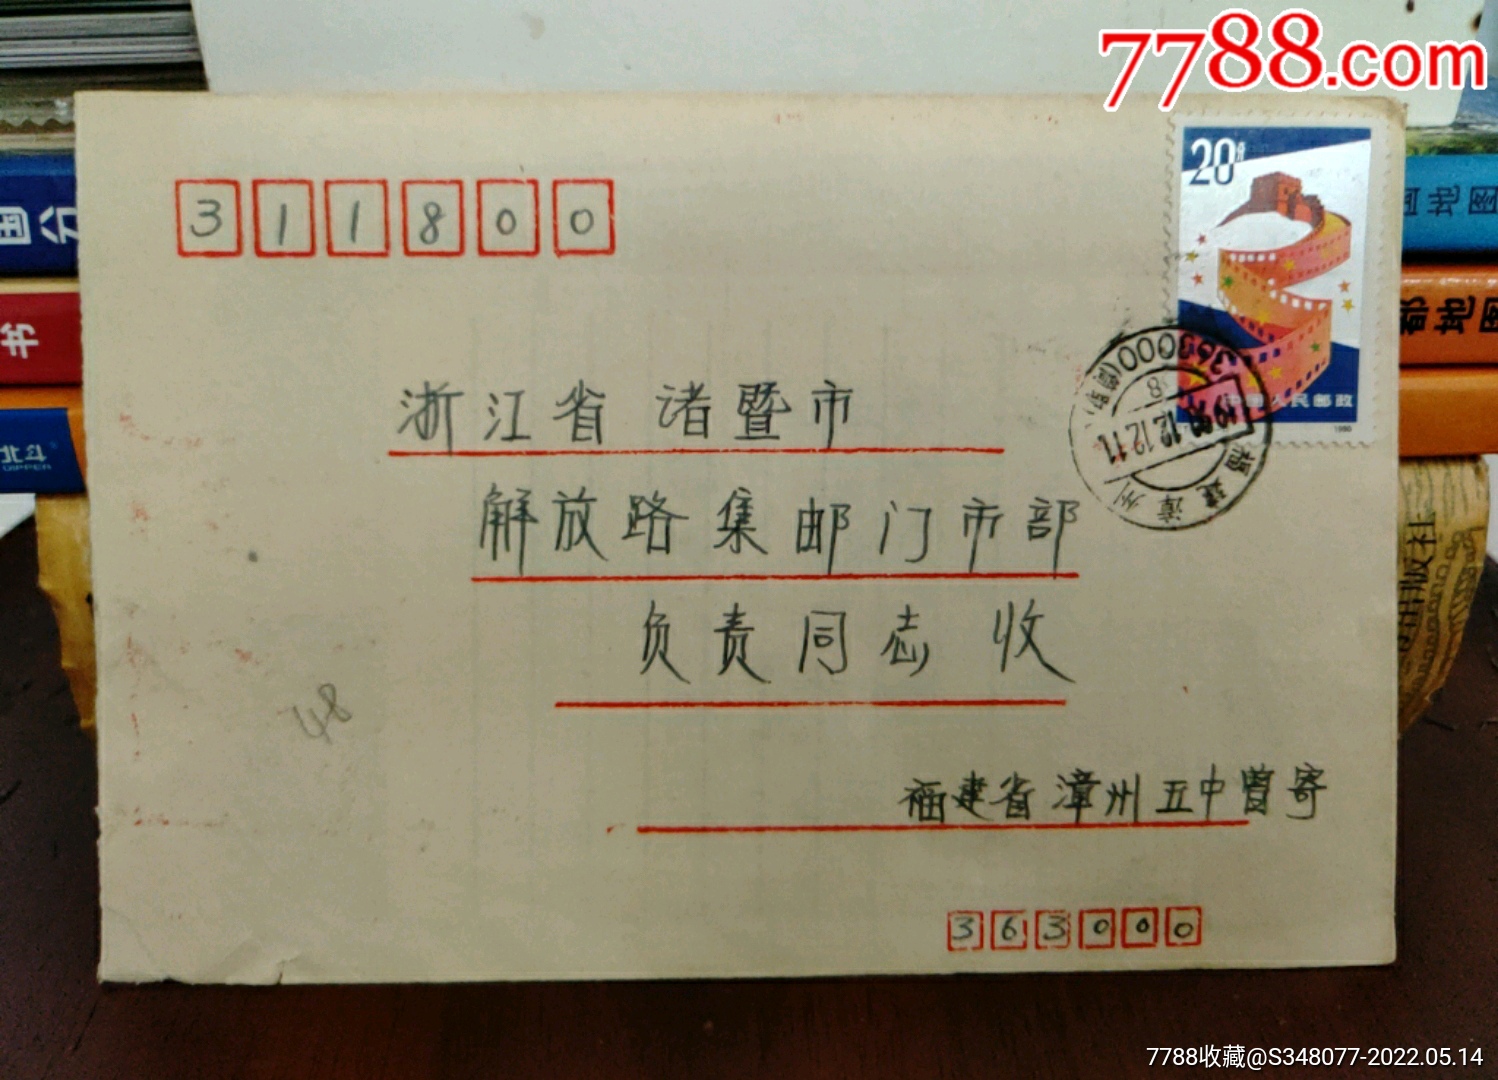 7788.com
20分
中国人民邮政
1990
311800
浙江省 诸暨市
解放路集邮门市部
负责同志 收
福建省漳州五中曾寄
363000
363000
12.12.11
福建漳州
48
书
北斗
DIPPER
地图
地图
出版社
7788收藏@S348077-2022.05.14